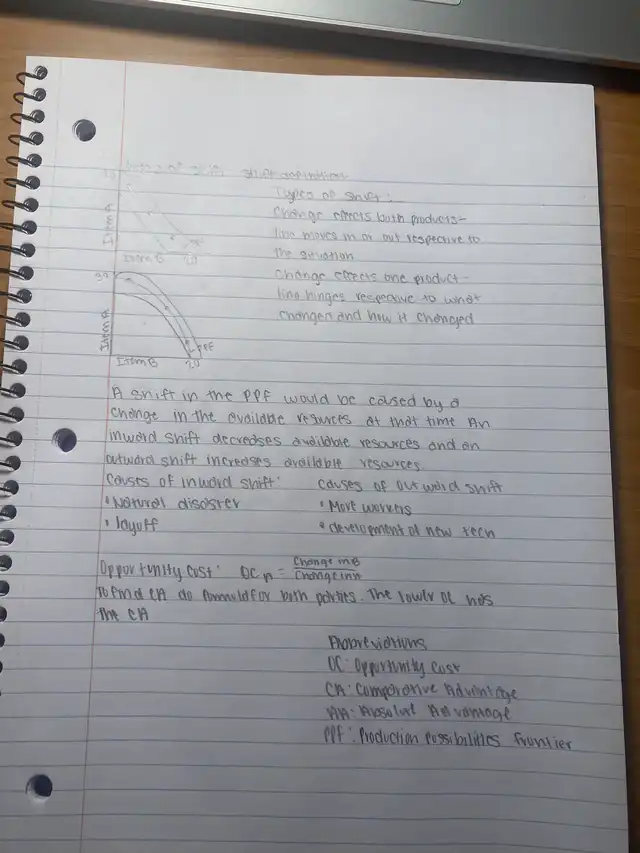 shift definitions
Types of shift:
Change effects both products-
line moves in or out respective to
the situation
Change effects one product-
line hinges respective to what
changed and how it changed
Item A
Item B
20
Item A
Item B
20
PPF
A shift in the PPF would be caused by a
change in the available resources at that time An
inward shift decreases available resources and an
outward shift increases available resources
Causes of inward shift:
• Natural disaster
• layoff
Causes of outward shift
• More workers
• development of new tech
Opportunity cost: OC A = Change in B / Change in A
To find CA do formula for both parties. The lower OC has
the CA
Abbreviations
OC: Opportunity Cost
CA: Comparative Advantage
AA: Absolute Advantage
PPF: Production Possibilities Frontier